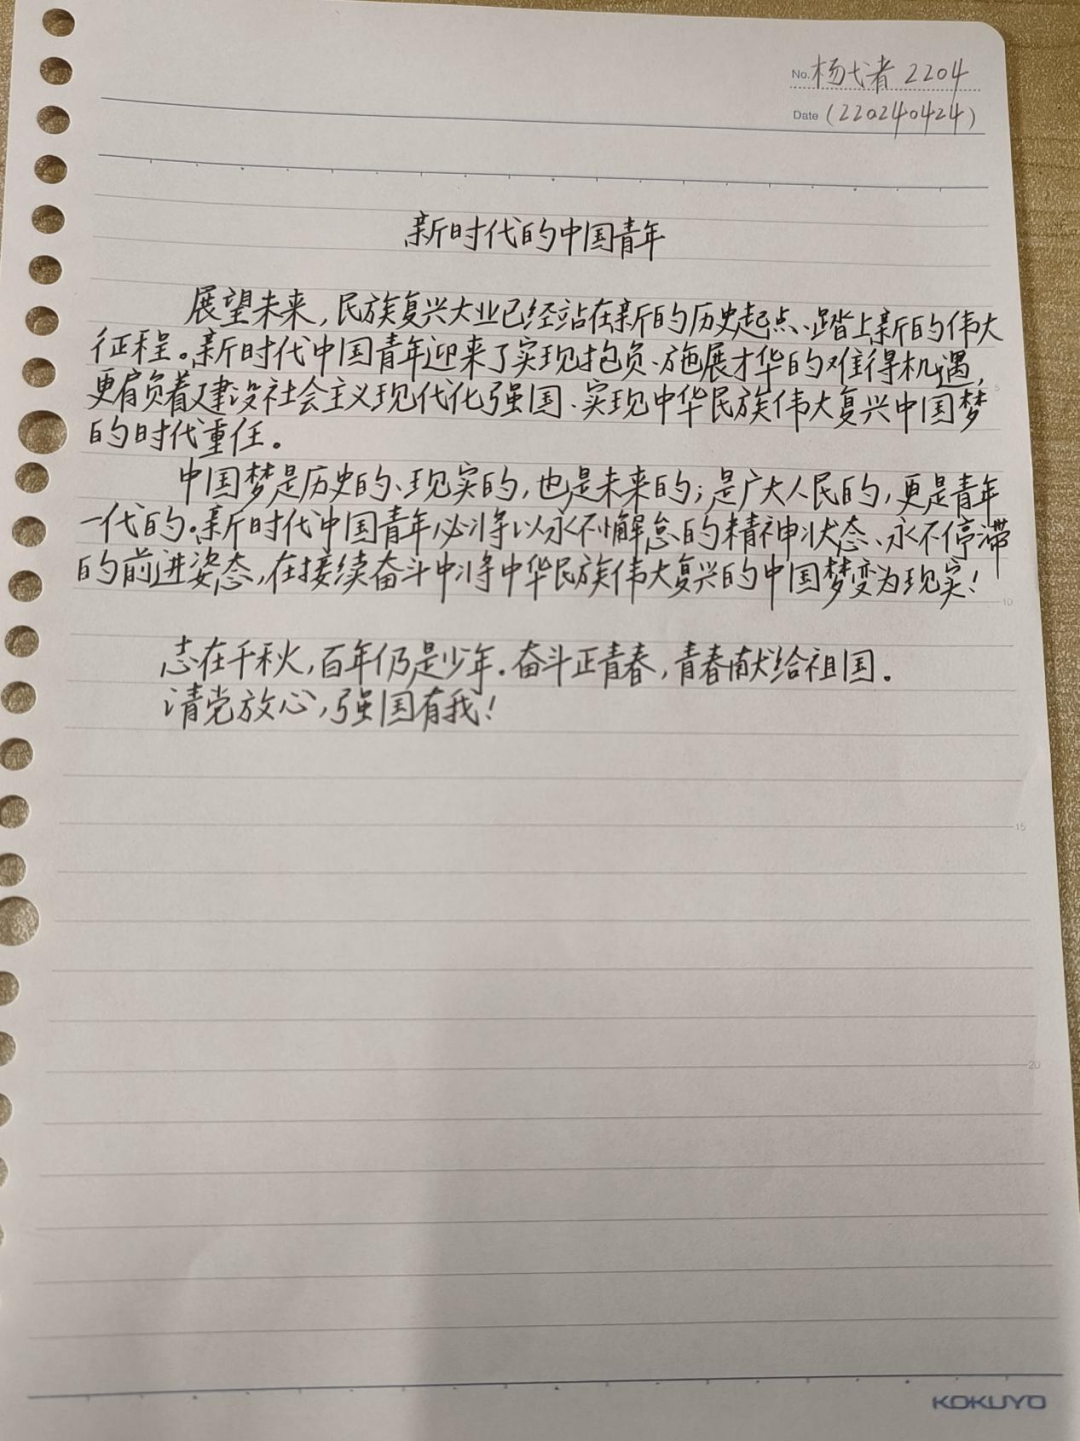 No. 杨弋渚 2204
Date (220240424)
新时代的中国青年
展望未来,民族复兴大业已经站在新的历史起点、踏上新的伟大
征程。新时代中国青年迎来了实现抱负、施展才华的难得机遇,
更肩负着建设社会主义现代化强国、实现中华民族伟大复兴中国梦
的时代重任。
中国梦是历史的、现实的,也是未来的;是广大人民的,更是青年
一代的。新时代中国青年必将以永不懈怠的精神状态、永不停滞
的前进姿态,在接续奋斗中将中华民族伟大复兴的中国梦变为现实!
志在千秋,百年仍是少年.奋斗正青春,青春献给祖国.
请党放心,强国有我!
5
10
15
20
KOKUYO